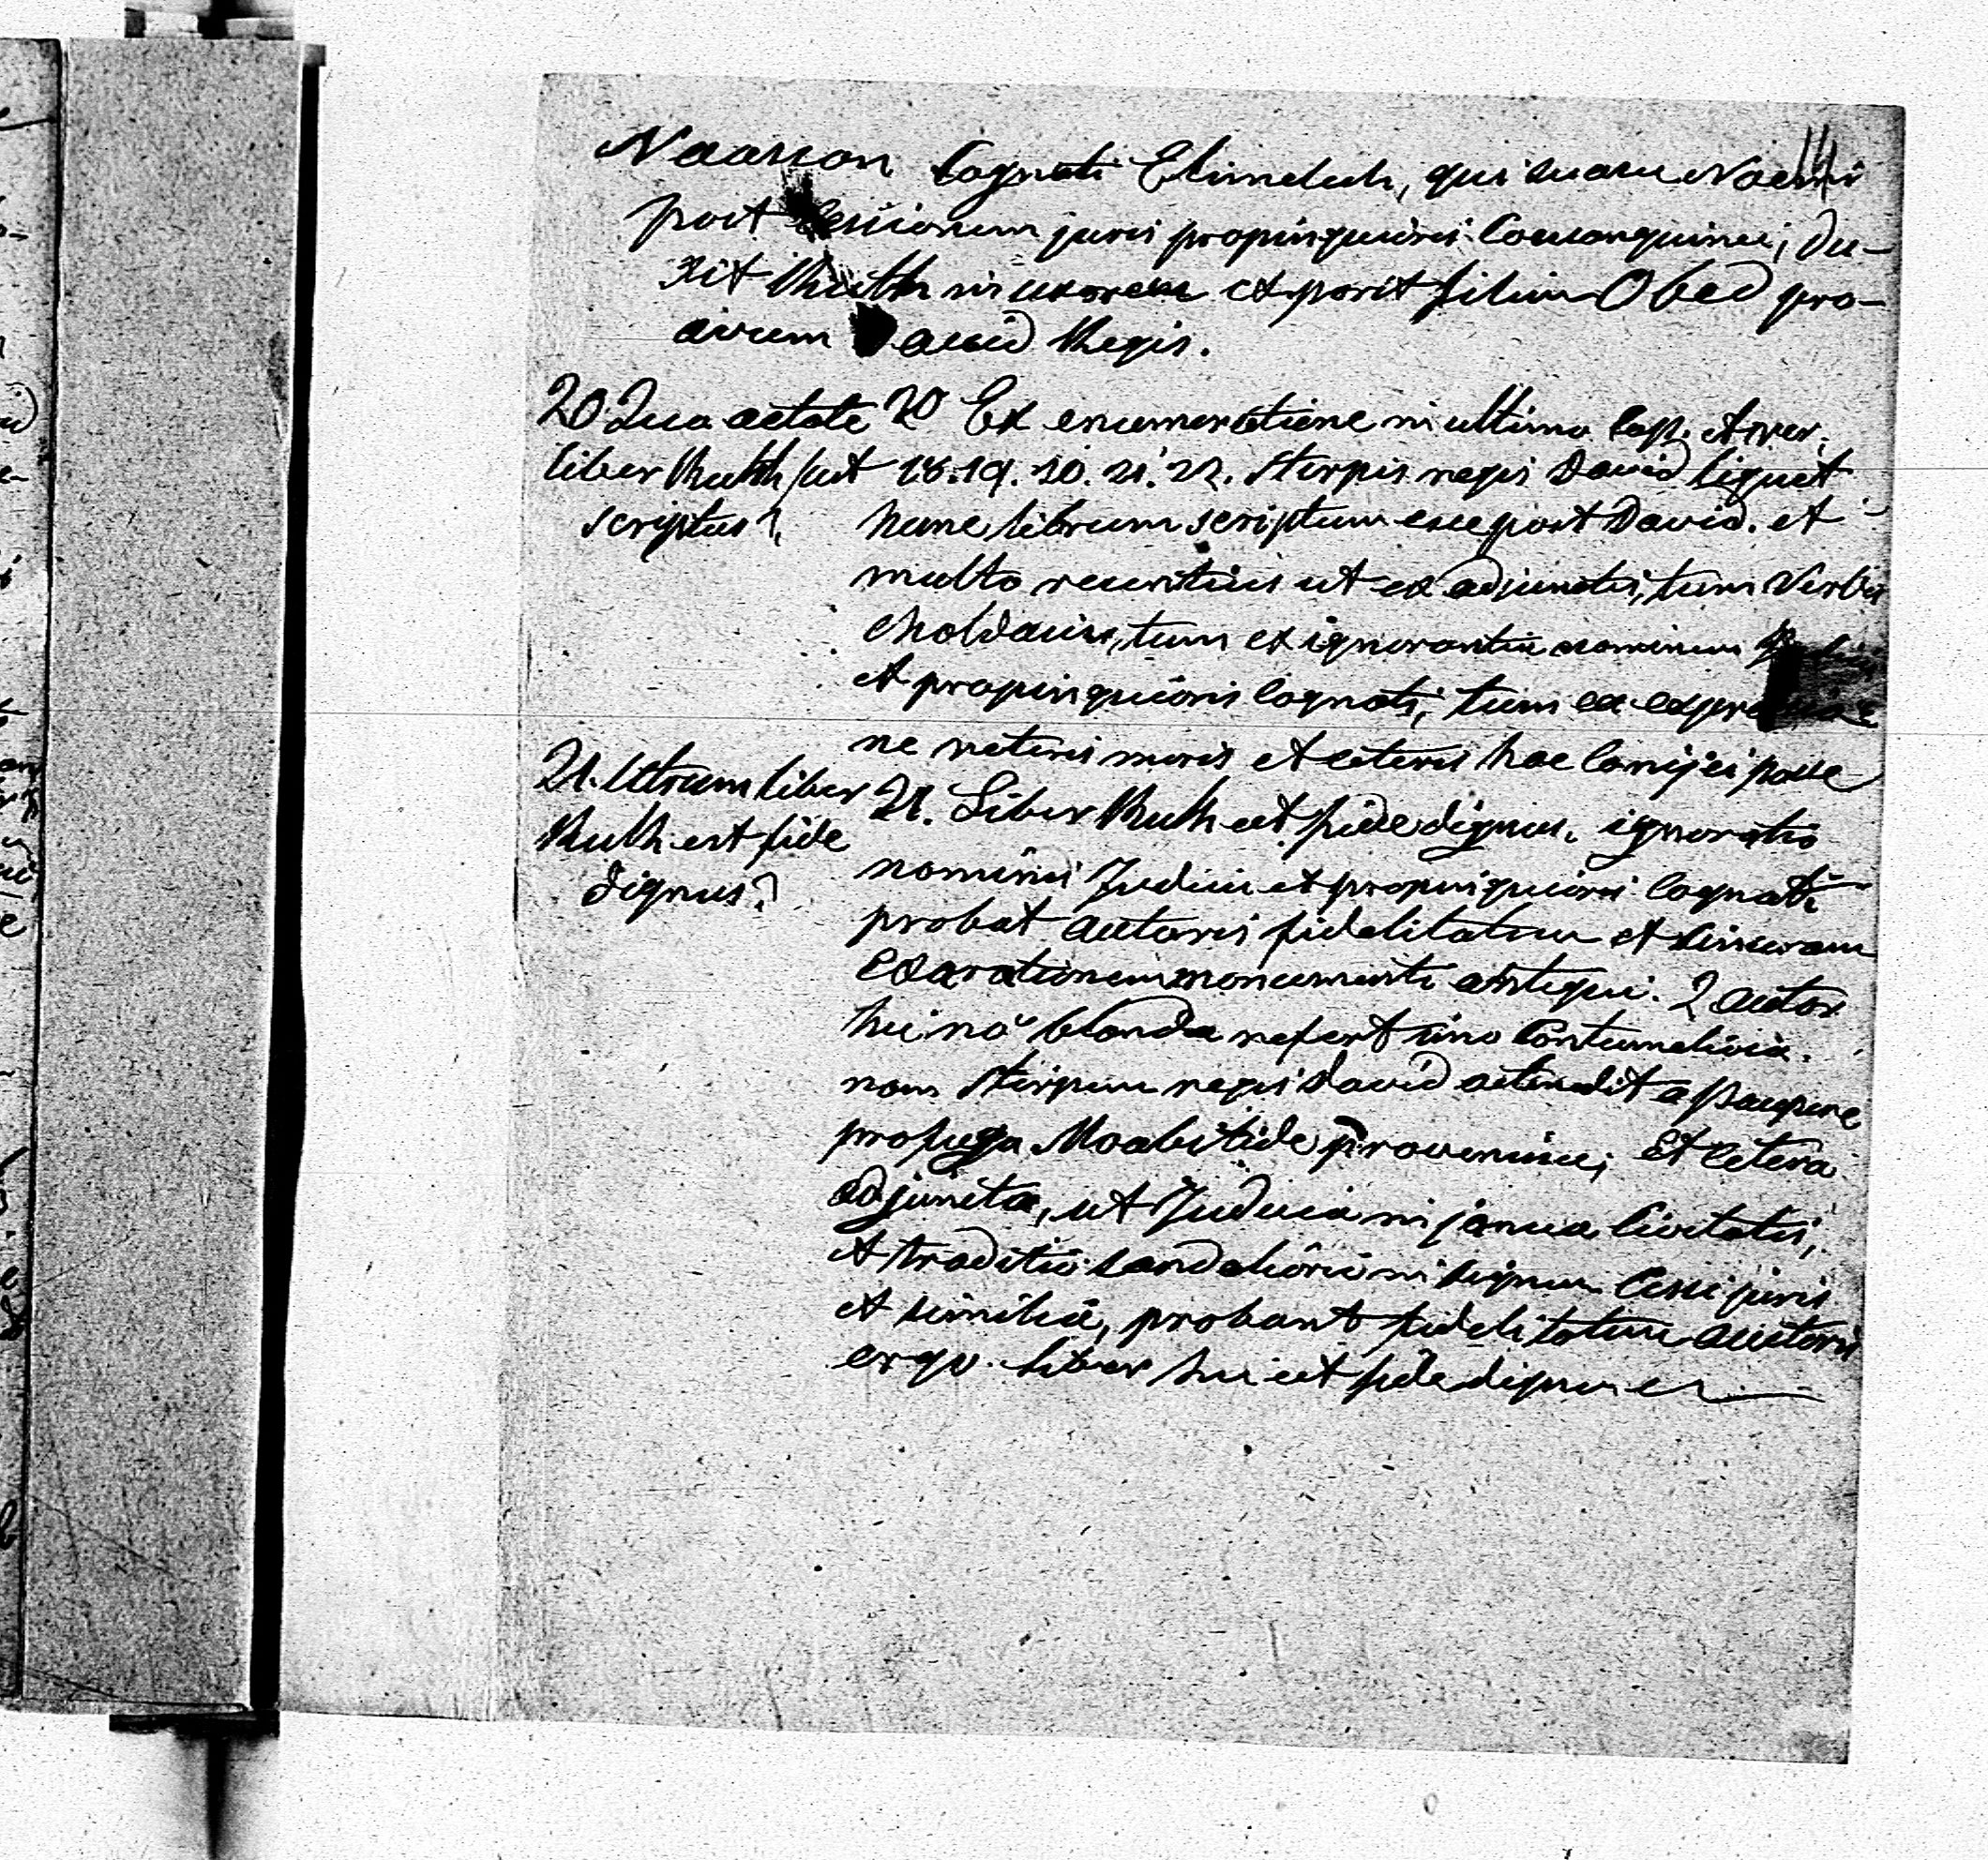 Naasson Cognati Elimelech, qui suasu Noemi
post Cessionem juris propinquioris Consanguinei, du-
xit Ruth in uxorem et parit filium Obed pro-
avum David Regis.
20. Qua aetate
liber Ruth sut
scriptus?
20 Ex enumeratione in ultimo Cap. et ver.
18. 19. 20. 21. 22. stirpis regis David liquet
hunc librum scriptum esse post David. et
multo recentius ut ex adjunctis, tum verbis
choldaicis, tum ex ignorantia nominum
et propinquioris Cognati, tum ex
ne veteris moris et ceteris hoc Conijci posse
21. Utrum liber
Ruth est fide
dignus?
21. Liber Ruth est fide dignus. ignoratio
nominis Judicis et propinquioris Cognati
probat autoris fidelitatem et sinceram
exarationem monumenti antiqui. 2 autor
hic nō blanda refert imo Contumeliosa.
nam stirpem regis David ostendit a paupere
profuga Moabitide provenisse; et cetera
adjuncta, ut Judicia in janua Civitatis,
et traditio sandaliorū in signum Cessi juris
et similia, probant fidelitatem auctoris
ergo liber hic est fide dignus